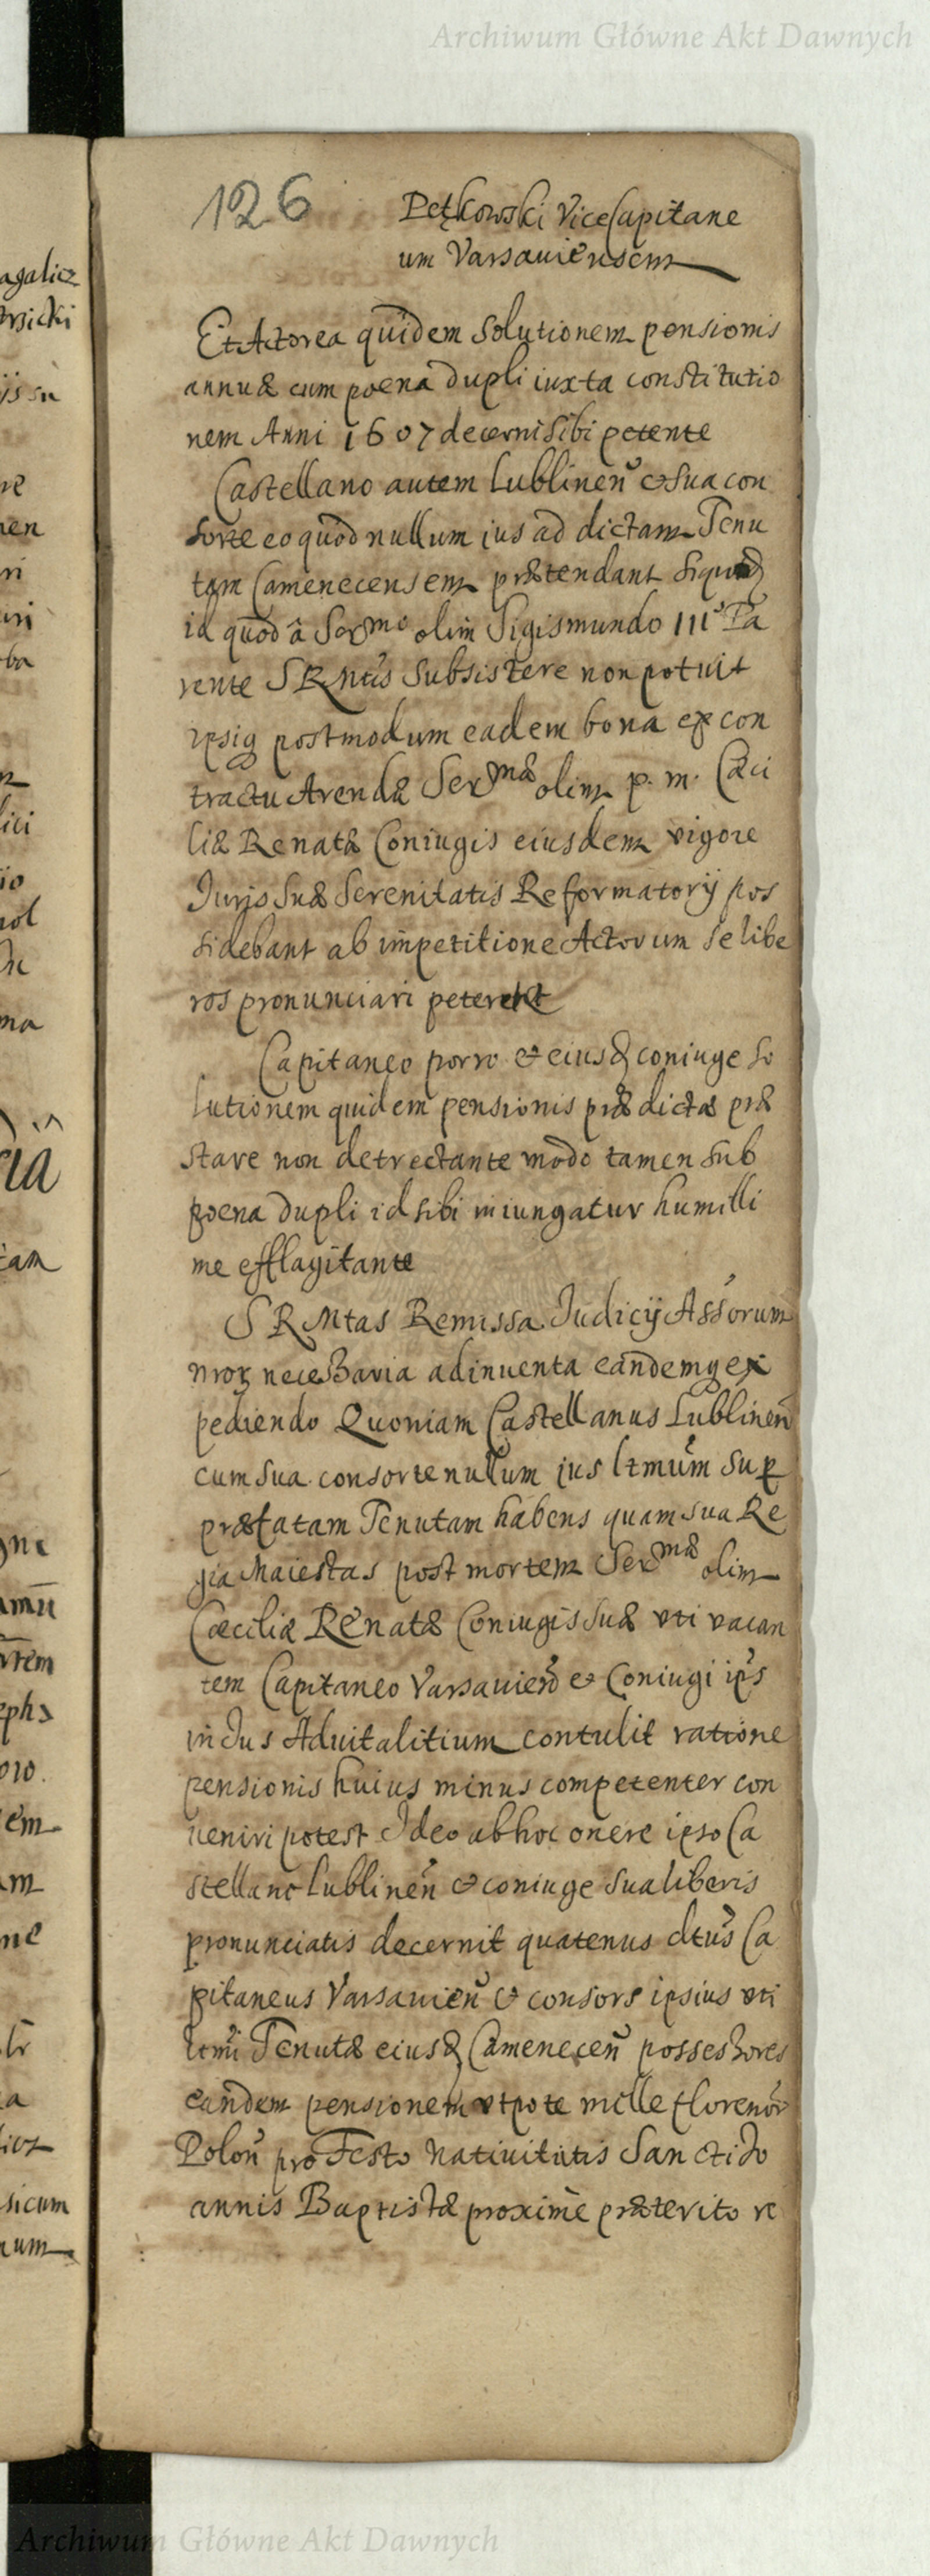 Archiwum Główne Akt Dawnych
126
Pętkowski ViceCapitane
um Varsauiensem
Et Actorea quidem Solutionem pensionis
annuæ cum poena dupli iuxta constitutio
nem Anni 1607 decerni Sibi petente
Castellano autem Lublinen̄ & sua con
sorte eo quod nullum ius ad dictam Tenu
tam Camenecensem prætendant
id quod â Sermo olim Sigismundo III Pa
rente S R Mtis Subsistere non potuit
ipsiq postmodum eadem bona ex con
tractu Arendæ Sermæ olim p. m. Cæci
liæ Renatæ Coniugis eiusdem vigore
Juris Suæ Serenitatis Reformatorij pos
sidebant ab impetitione Actorum se libe
ros pronunciari
Capitaneo porro & eiusq coniuge So
lutionem quidem pensionis prædictæ præ
stare non detrectante modo tamen sub
poena dupli id sibi iniungatur humilli
me efflagitante
S R Mtas Remissa Judicij Assorum
necessaria adinuenta eandemq ex
pediendo Quoniam Castellanus Lublinen̄
cum Sua consorte nullum ius ltmum sup
præfatam Tenutam habens quam sua Re
gia Maiestas post mortem Sermæ olim
Cæciliæ Renatæ Coniugis Suæ vti vacan
tem Capitaneo Varsauien̄ & Coniugi ips
in Jus Aduitalitium contulit ratione
pensionis huius minus competenter con
ueniri potest Ideo ab hoc onere ipso Ca
stellano Lublinen̄ & coniuge Sua liberis
pronunciatis decernit quatenus dtus Ca
pitaneus Varsauien̄ & consors ipsius vti
ltmi Tenutæ eiusq Camenecen̄ possessores
eandem pensionem vtpote mille florenor
Polon̄ pro Festo Natiuitatis Sancti Jo
annis Baptistæ proxime præterito re
Archiwum Główne Akt Dawnych